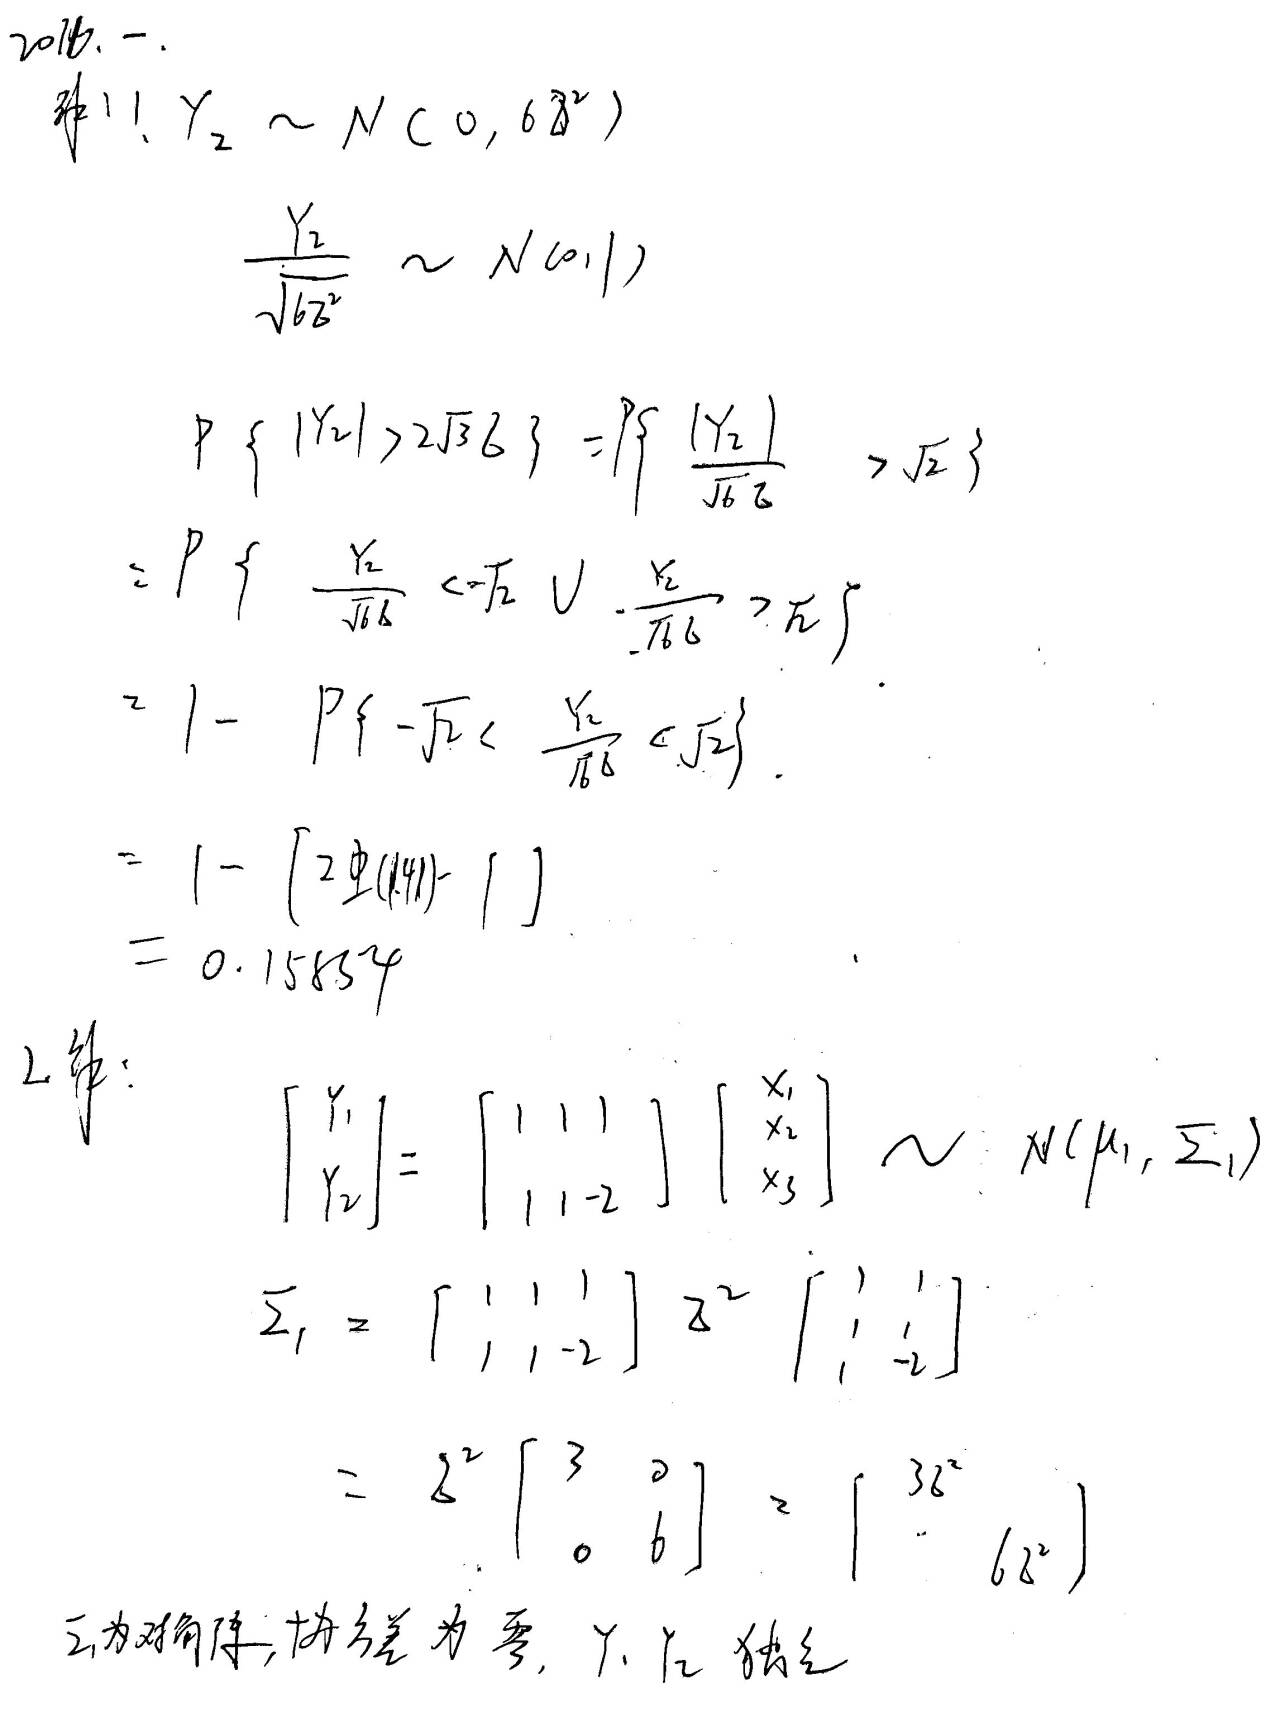 2016. 一.
解:1. Y₂ ~ N(0, 6σ²)
Y₂/√(6σ²) ~ N(0,1)
P{|Y₂|>2√3σ} = P{|Y₂|/(√6σ) > √2}
= P{Y₂/(√6σ) < -√2 ∪ Y₂/(√6σ) > √2}
= 1 - P{-√2 < Y₂/(√6σ) < √2}.
= 1 - [2Φ(1.41) - 1]
= 0.15854
2 解:
[Y₁; Y₂] = [1 1 1; 1 1 -2] [X₁; X₂; X₃] ~ N(μ₁, Σ₁)
Σ₁ = [1 1 1; 1 1 -2] σ² [1 1; 1 1; 1 -2]
= σ² [3 0; 0 6] = [3σ² ; 6σ²]
Σ₁为对角阵, 协方差为零, Y₁ Y₂ 独立